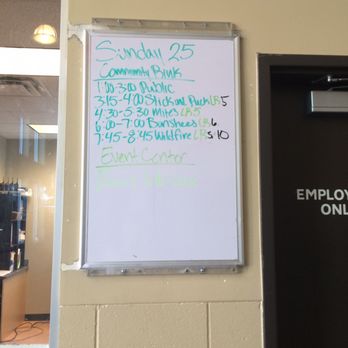 Sunday 25
Community Rink
1:00-3:00 Public
3:15-4:00 Stick and Puck LR 5
4:30-5:30 Mites LR 5
6:00-7:00 Banshees LR 6
7:45-8:45 Wildfire LR 5, 10
Event Center
EMPLOY
ONL